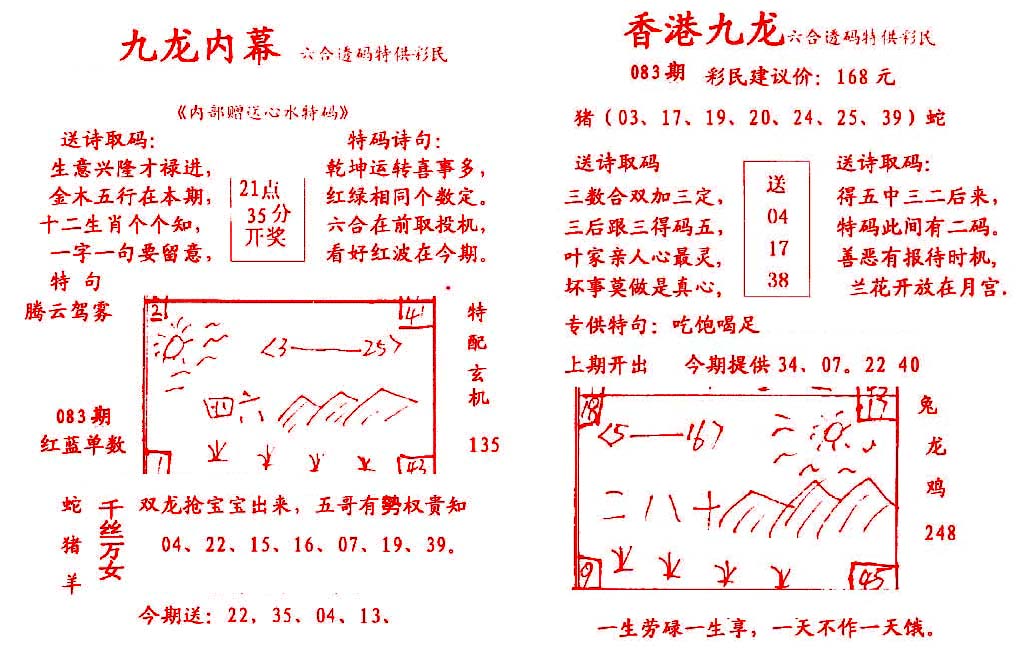 九龙内幕 六合透码特供彩民
《内部赠送心水特码》
送诗取码：
生意兴隆才禄进，
金木五行在本期，
十二生肖个个知，
一字一句要留意，
21点
35分
开奖
特码诗句：
乾坤运转喜事多，
红绿相同个数定。
六合在前取投机，
看好红波在今期。
特 句
腾云驾雾
083期
红蓝单数
2
41
<3——25>
四六
1
43
特
配
玄
机
135
蛇
猪
羊
千丝万女
双龙抢宝宝出来，五哥有勢权贵知
04、22、15、16、07、19、39。
今期送：22，35、04、13、
香港九龙 六合透码特供彩民
083期 彩民建议价：168元
猪（03、17、19、20、24、25、39）蛇
送诗取码
三数合双加三定，
三后跟三得码五，
叶家亲人心最灵，
坏事莫做是真心，
送
04
17
38
送诗取码：
得五中三二后来，
特码此间有二码。
善恶有报待时机，
兰花开放在月宫．
专供特句：吃饱喝足
上期开出 今期提供34、07。22 40
18
<5——16>
二八十
9
45
兔
龙
鸡
248
一生劳碌一生享，一天不作一天饿。